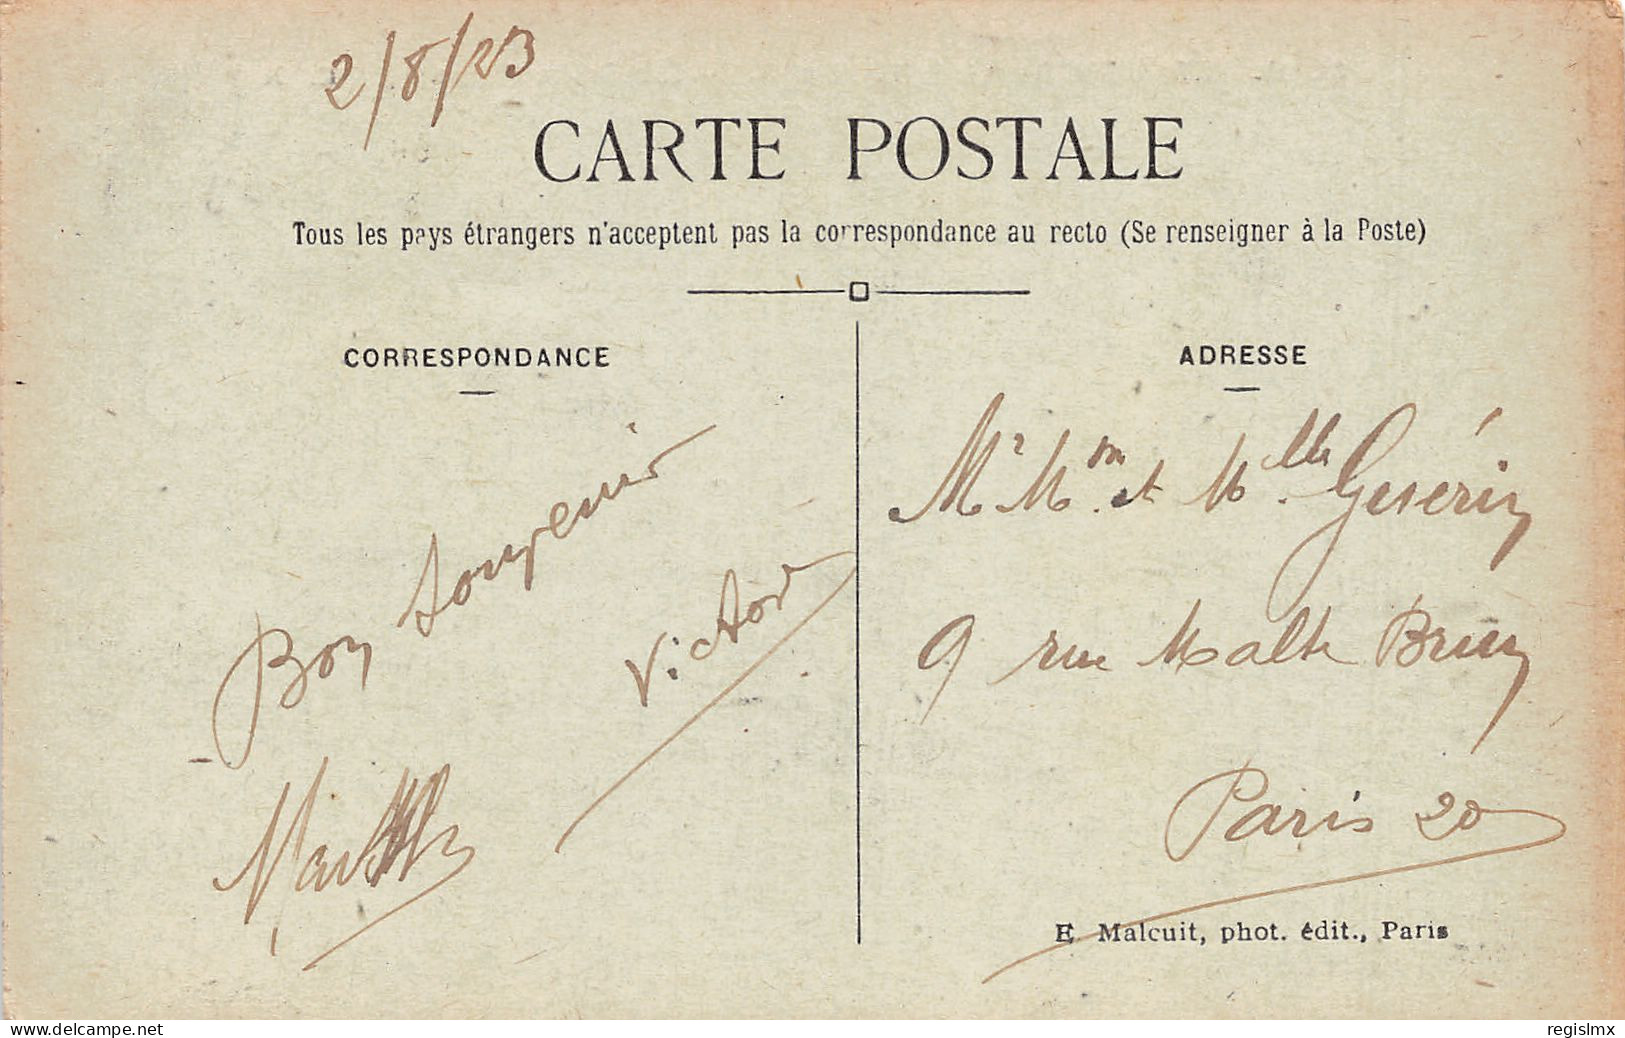 2/8/23
CARTE POSTALE
Tous les pays étrangers n'acceptent pas la correspondance au recto (Se renseigner à la Poste)
CORRESPONDANCE
ADRESSE
Bon souvenir
Victor
Mr Mm. et Mlle
9 rue Malte Brun
Paris 20
E. Malcuit, phot. édit., Paris
Www.Delcampe.net
regislmx